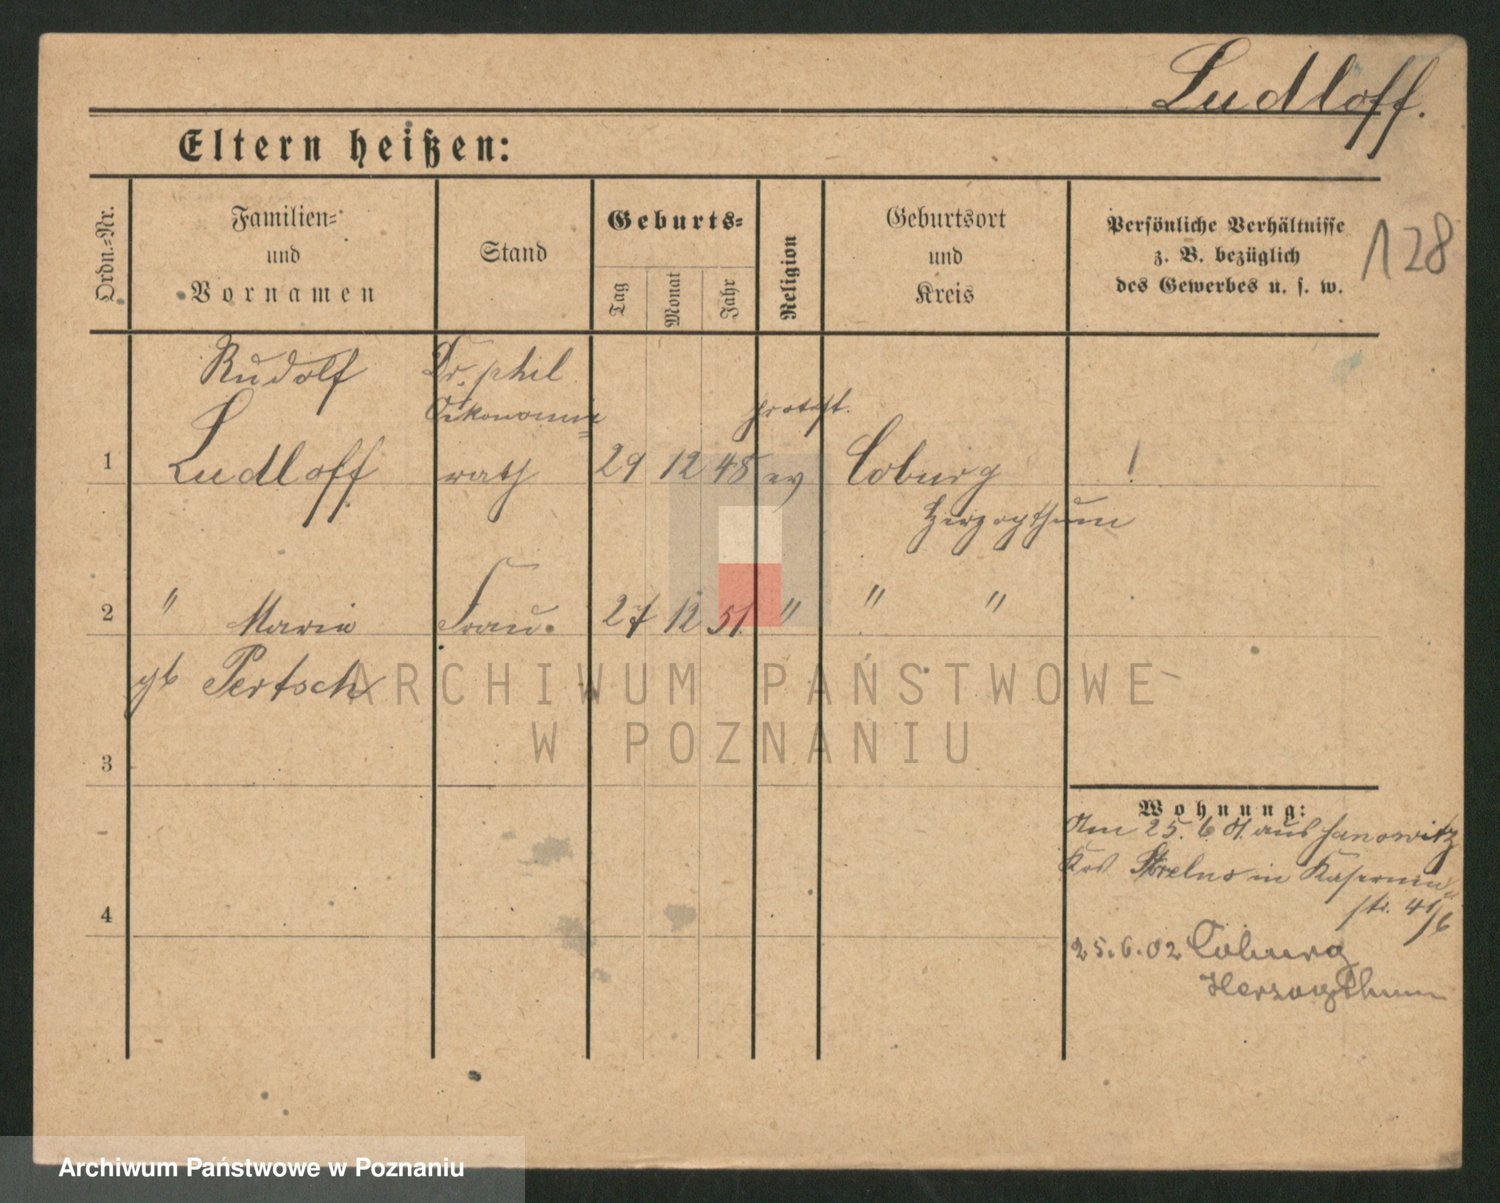 Ludloff.
Eltern heißen:
Ordn.-Nr.
Familien-
und
Vornamen
Stand
Geburts-
Tag
Monat
Jahr
Religion
Geburtsort
und
Kreis
Persönliche Verhältnisse
z. B. bezüglich
des Gewerbes u. s. w.
128
Rudolf Dr. phil
Oekonomie protest.
1 Ludloff rath 29 12 48 ev Coburg !
Herzogthum
2 " Marie Frau. 27 12 51. " " "
gb Pertsch
3
Wohnung:
Am 25. 6. 01. aus Janowitz
Krs Strelno in Kasernen-
4 str. 4 I/6
25.6.02 Coburg
Herzogthum
ARCHIWUM PAŃSTWOWE
W POZNANIU
Archiwum Państwowe w Poznaniu